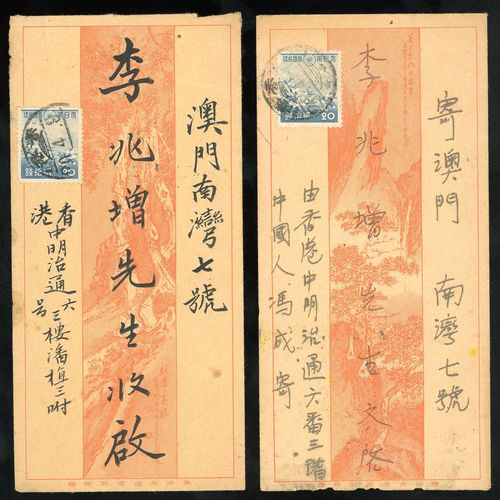 澳門南灣七號
李兆增先生收啟
香港中明治通六號三樓潘植三付
20
寄澳門 南灣七號
李兆增先生文啓
由香港中明治通六番三階
中國人馮成寄
20